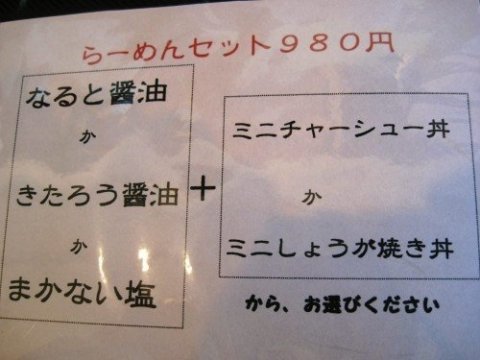 らーめんセット９８０円
なると醤油
か
きたろう醤油
か
まかない塩
＋
ミニチャーシュー丼
か
ミニしょうが焼き丼
から、お選びください